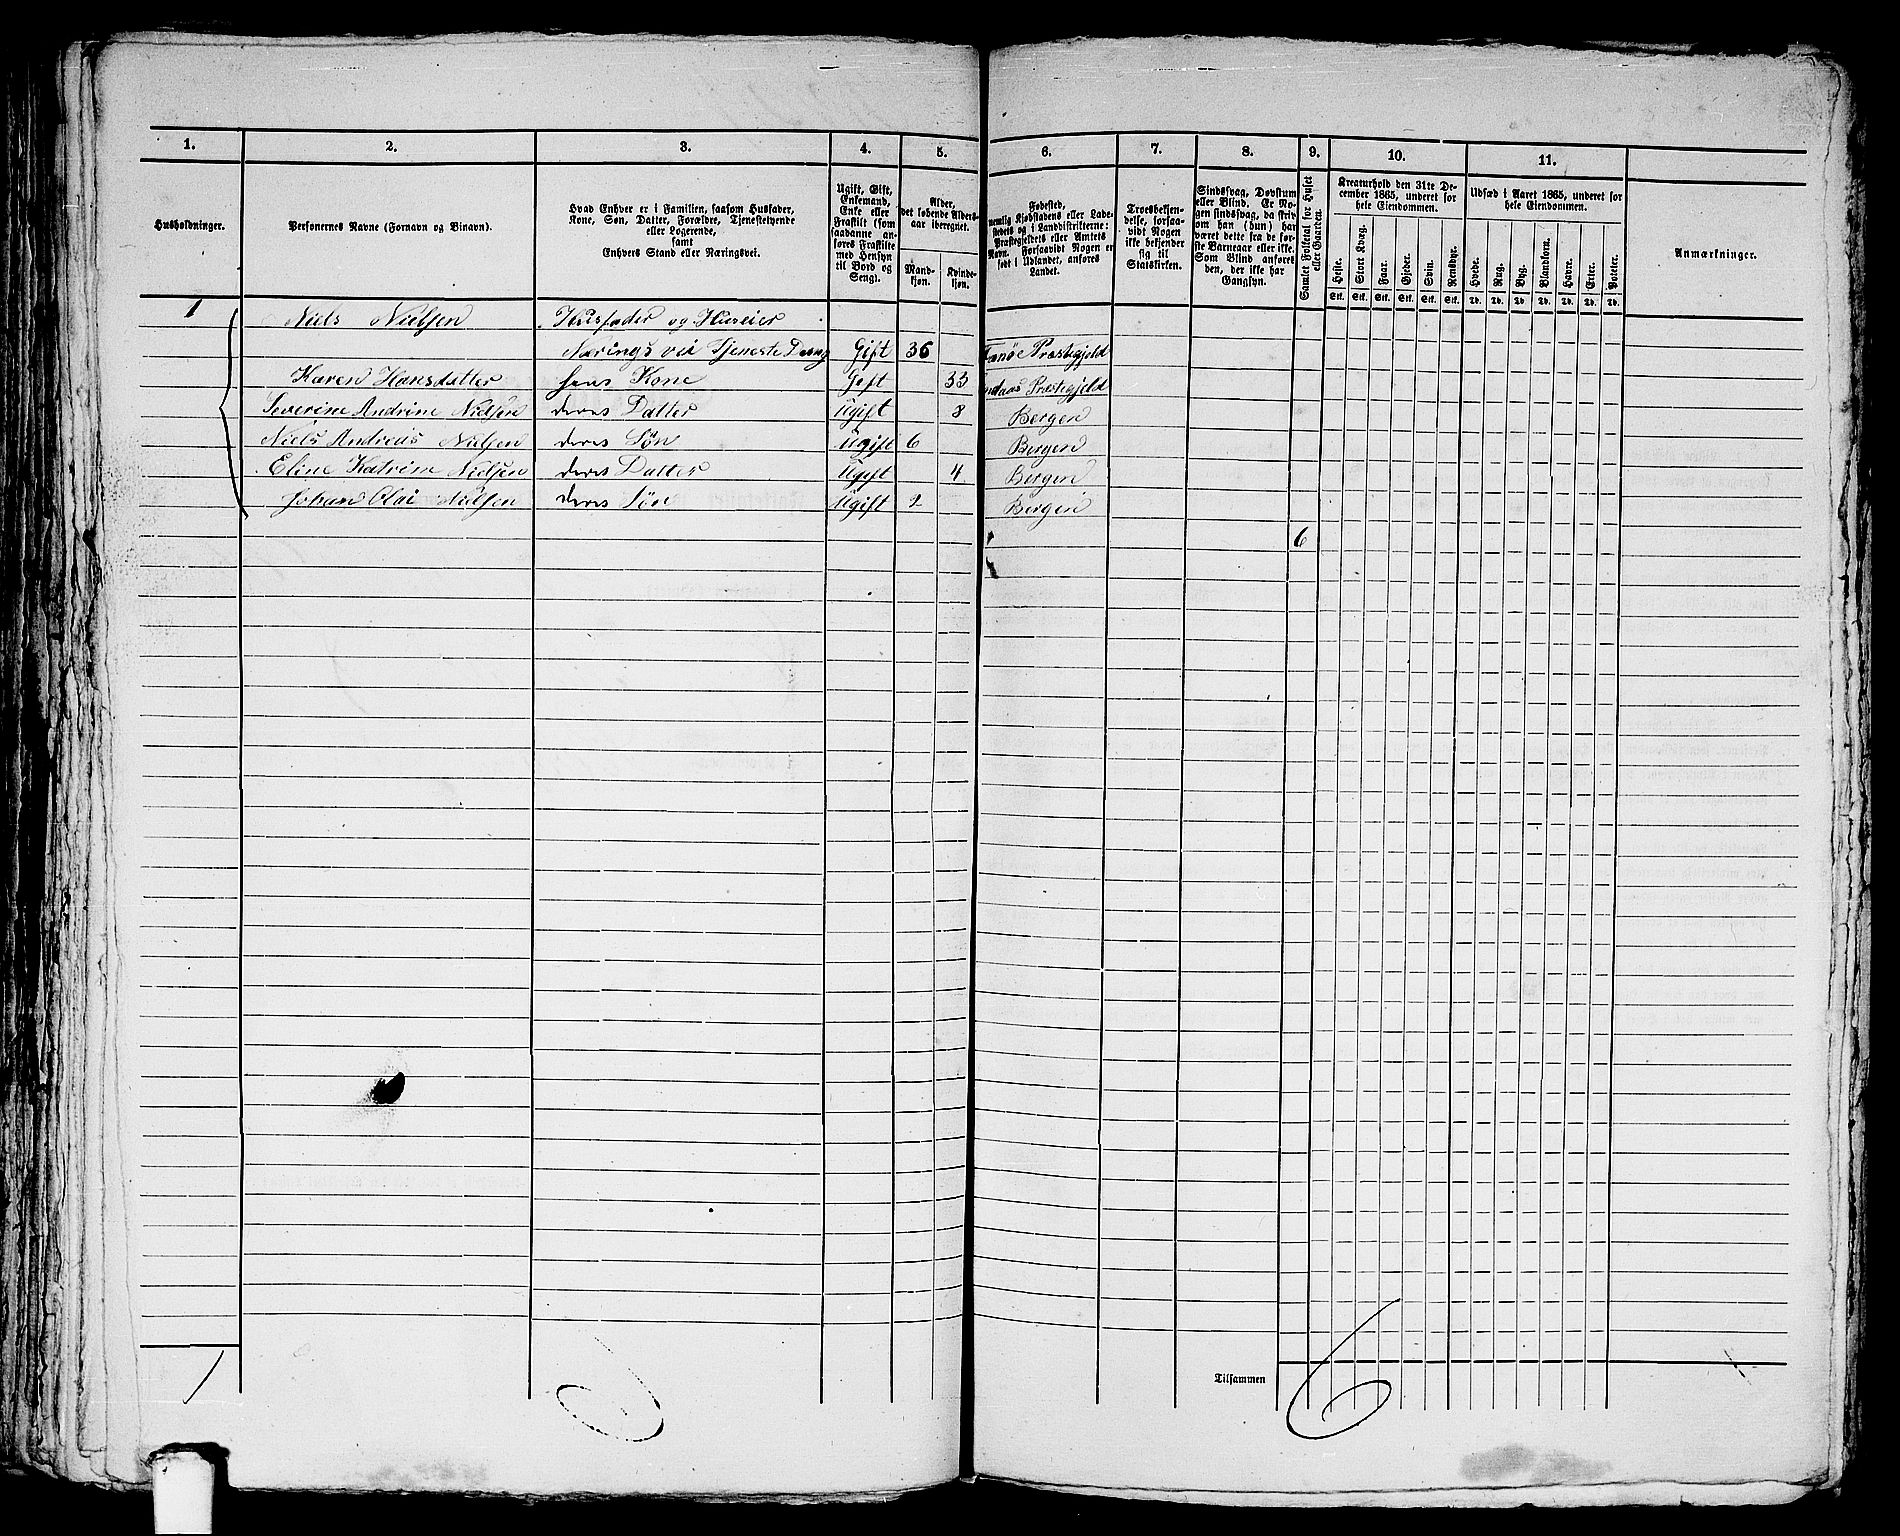 1. 2. 3. 4. 5. 6. 7. 8. 9. 10. 11.
Husholdninger.
Personernes Navne (Fornavn og Binavn).
Hvad Enhver er i Familien, saasom Husfader,
Kone, Søn, Datter, Forældre, Tjenestetyende
eller Logerende,
samt
Enhvers Stand eller Næringsvei.
Ugift, Gift,
Enkemand,
Enke eller
Fraskilt (som
saadanne an-
føres Fraskilte
med Hensyn
til Bord og
Seng).
Alder,
det løbende Alders-
aar iberegnet.
Mand-
kjøn.
Kvinde-
kjøn.
Fødested,
nemlig Kjøbstadens eller Lade-
stedets og i Landdistrikterne:
Præstegjeldets eller Amtets
Navn. Forsaavidt Nogen er
født i Udlandet, anføres
Landet.
Troesbekjen-
delse, forsaa-
vidt Nogen
ikke bekjender
sig til
Statskirken.
Sindssvag, Døvstum
eller Blind. Er No-
gen sindssvag, da skriv
om han (hun) har
været dette fra de før-
ste Barneaar eller ikke.
Som Blind anføres
den, der ikke har
Gangsyn.
Samlet Folketal for Huset
eller Gaarden.
Kreaturhold den 31te De-
cember 1865, underet for
hele Eiendommen.
Heste. Stort Kvæg. Faar. Gjeder. Svin. Rensdyr.
Stk. Stk. Stk. Stk. Stk. Stk.
Udsæd i Aaret 1865, underet for
hele Eiendommen.
Hvede. Rug. Byg. Blandkorn. Havre. Erter. Poteter.
Td. Td. Td. Td. Td. Td. Td.
Anmærkninger.
1 Niels Nielsen Husfader og Huseier
Nærings vei Tjeneste Deeng Gift 36 Præstegjeld
Karen Hansdatter hans Kone Gift 33 Præstegjeld
Severine Andrine Nielsen deres Datter Ugift 8 Bergen
Niels Andreas Nielsen deres Søn Ugift 6 Bergen
Eline Katrine Nielsen deres Datter Ugift 4 Bergen
Johan Olai Nielsen deres Søn Ugift 2 Bergen
6
Tilsammen
1 6